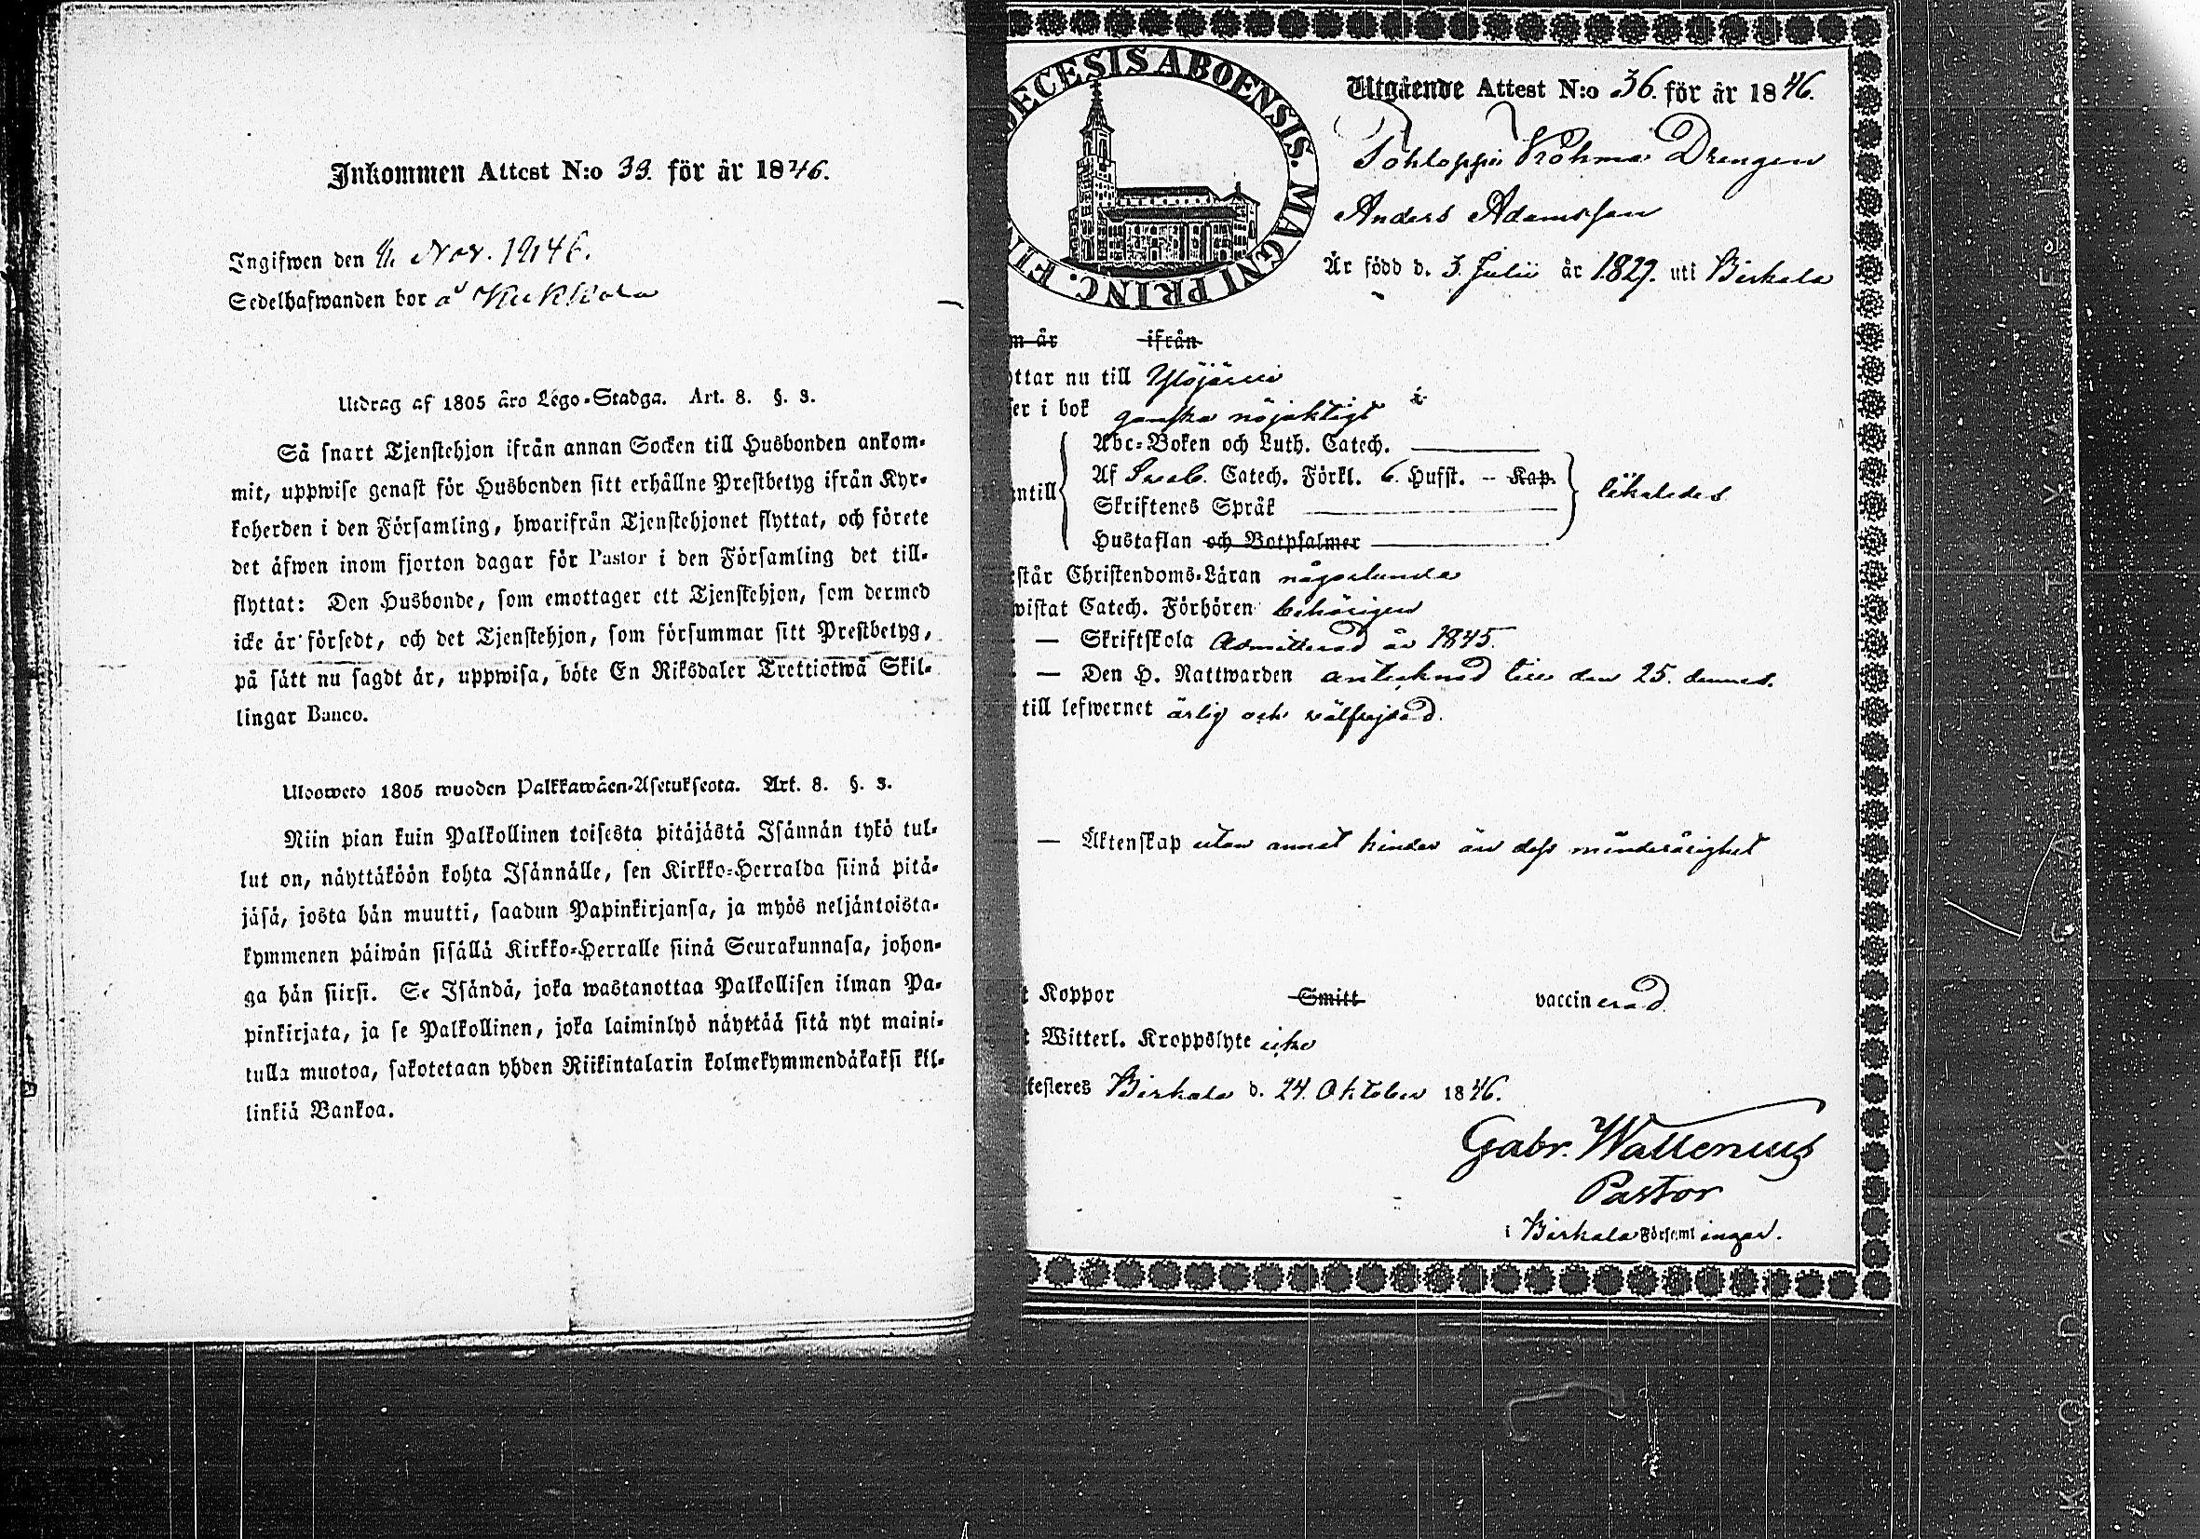 Inkommen Attest N:o 33. för år 1846.
Ingifwen den Nov. 1846.
Sedelhafwanden bor å
Utdrag af 1805 års Lego-Stadga. Art. 8. §. 3.
Så snart Tjenstehjon ifrån annan Socken till Husbonden ankom-
mit, uppwise genast för Husbonden sitt erhållne Prestbetyg ifrån Kyr-
koherden i den Församling, hwarifrån Tjenstehjonet flyttat, och förete
det äfwen inom fjorton dagar för Pastor i den Församling det till-
flyttat: Den Husbonde, som emottager ett Tjenstehjon, som dermed
icke är försedt, och det Tjenstehjon, som försummar sitt Prestbetyg,
på sätt nu sagdt är, uppwisa, böte En Riksdaler Trettiotwå Skil-
lingar Banco.
Ulosweto 1805 wuoden Palkkawäen-Asetuksesta. Art. 8. §. 3.
Niin pian kuin Palkollinen toisesta pitäjästä Isännän tykö tul-
lut on, näyttäköön kohta Isännälle, sen Kirkko-Herralda siinä pitä-
jäsä, josta hän muutti, saadun Papinkirjansa, ja myös neljäntoista-
kymmenen päiwän sisällä Kirkko-Herralle siinä Seurakunnasa, johon-
ga hän siirsi. Se Isändä, joka wastanottaa Palkollisen ilman Pa-
pinkirjata, ja se Palkollinen, joka laiminlyö näyttää sitä nyt maini-
tulla muotoa, sakotetaan yhden Riikintalarin kolmekymmendäkaksi kil-
linkiä Bankoa.
DECESIS ABOENSIS. MAGNI PRINC. FIN
Utgående Attest N:o 36. för år 1846.
Tohloppi Drengen
Anders Adamsson
Är född d. 3. Julii år 1829. uti Birkala
m år ifrån
ttar nu till Ylöjärvi
er i bok ganska nöjaktigt
Abc-Boken och Luth. Catech.
Af Catech. Förkl. 6. Hufst. – Kap.
ntill likaledes
Skriftenes Språk
Hustaflan och Botpsalmer
står Christendoms-Läran någorlunda
wistat Catech. Förhören behörigen
— Skriftskola Admitterad år 1845.
— Den H. Nattwarden antecknad till den 25. dennes.
till lefwernet ärlig och wälfrejdad.
— Äktenskap utan annat hinder än dess minderårighet
t Koppor Smitt vaccinerad.
t Witterl. Kroppslyte icke
testeres Birkala d. 24. Oktober 1846.
Gabr. Wallenius
Pastor
i Birkala Församlingar.
KODAK SAFETY FILM